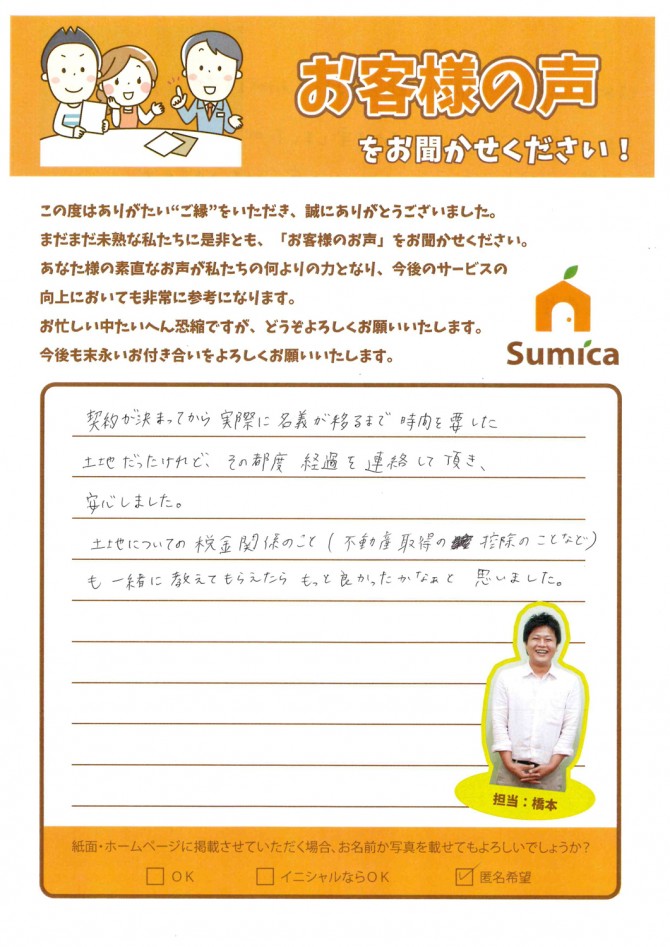 お客様の声
をお聞かせください！
この度はありがたい“ご縁”をいただき、誠にありがとうございました。
まだまだ未熟な私たちに是非とも、「お客様のお声」をお聞かせください。
あなた様の素直なお声が私たちの何よりの力となり、今後のサービスの
向上においても非常に参考になります。
お忙しい中たいへん恐縮ですが、どうぞよろしくお願いいたします。
今後も末永いお付き合いをよろしくお願いいたします。
Sumica
契約が決まってから実際に名義が移るまで時間を要した
土地だったけれど、その都度経過を連絡して頂き、
安心しました。
土地についての税金関係のこと(不動産取得の控除のことなど)
も一緒に教えてもらえたらもっと良かったかなぁと思いました。
担当：橋本
紙面・ホームページに掲載させていただく場合、お名前か写真を載せてもよろしいでしょうか？
□ OK □ イニシャルならOK ☑ 匿名希望